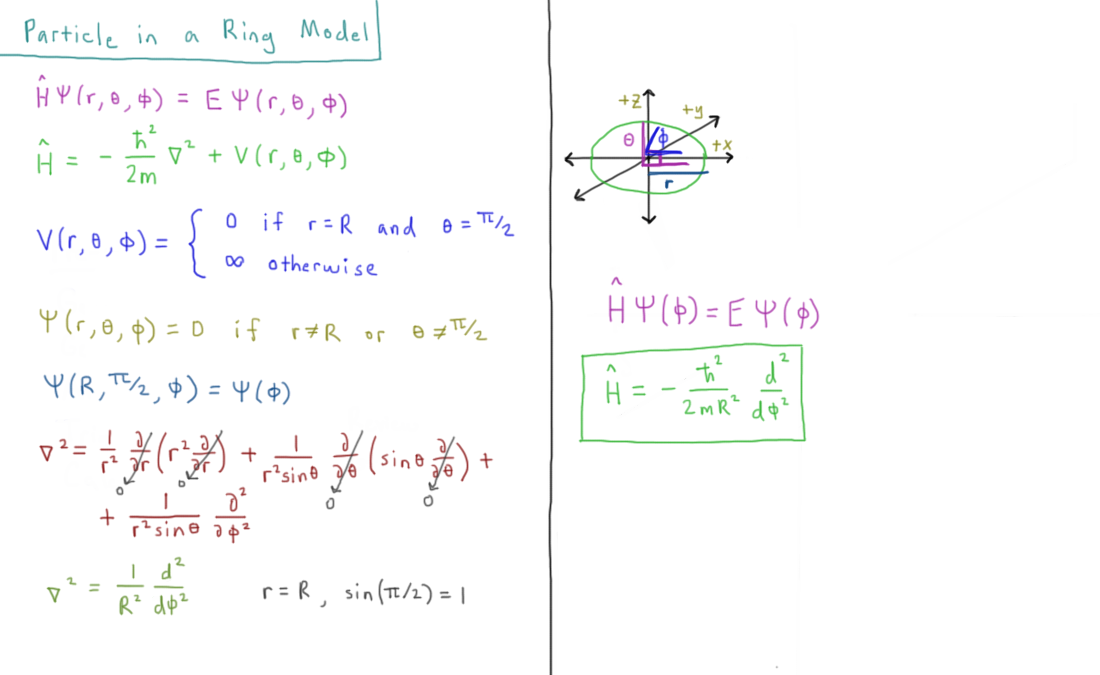 Particle in a Ring Model
Ĥ Ψ(r, θ, ϕ) = E Ψ(r, θ, ϕ)
Ĥ = - ħ²/2m ∇² + V(r, θ, ϕ)
V(r, θ, ϕ) = { 0 if r = R and θ = π/2
∞ otherwise
Ψ(r, θ, ϕ) = 0 if r ≠ R or θ ≠ π/2
Ψ(R, π/2, ϕ) = Ψ(ϕ)
∇² = 1/r² ∂/∂r (r² ∂/∂r) + 1/r² sinθ ∂/∂θ (sinθ ∂/∂θ) +
0 0 0 0
+ 1/r² sinθ ∂²/∂ϕ²
∇² = 1/R² d²/dϕ² r = R, sin(π/2) = 1
+z
+y
θ ϕ
+x
r
Ĥ Ψ(ϕ) = E Ψ(ϕ)
Ĥ = - ħ²/2mR² d²/dϕ²